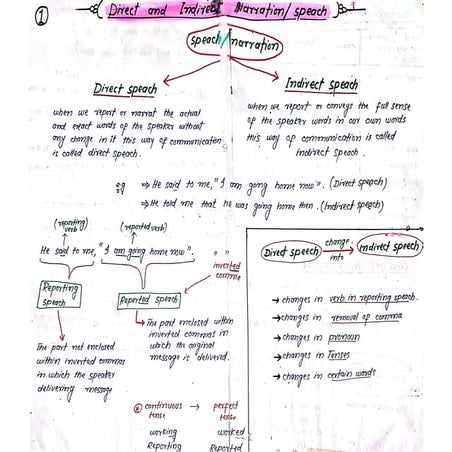 1
Direct and Indirect Narration/speach
speach/narration
Direct speach
when we report or narrat the actual
and exact words of the speaker without
any change in it this way of communication
is called direct speach.
Indirect speach
when we report or conveys the full sense
of the speaker words in our own words
this way of communication is called
Indirect speach.
eg ⇒ He said to me, "I am going home now". (Direct speach)
⇒ He told me that he was going home then. (Indirect speach)
(reporting verb)
(reported verb)
He said to me, "I am going home now".
" "
inverted
comma
Reporting
speach
Reported speach
The part not enclosed
within inverted commas
in which the speaker
delivering message
The part enclosed within
inverted commas in
which the original
message is delivered.
Direct speech change into Indirect speech
→ changes in verb in reporting speach.
→ changes in removal of comma
→ changes in pronoun
→ changes in Tenses
→ changes in certain words
continuous tense → perfect tense
working worked
Reporting Reported